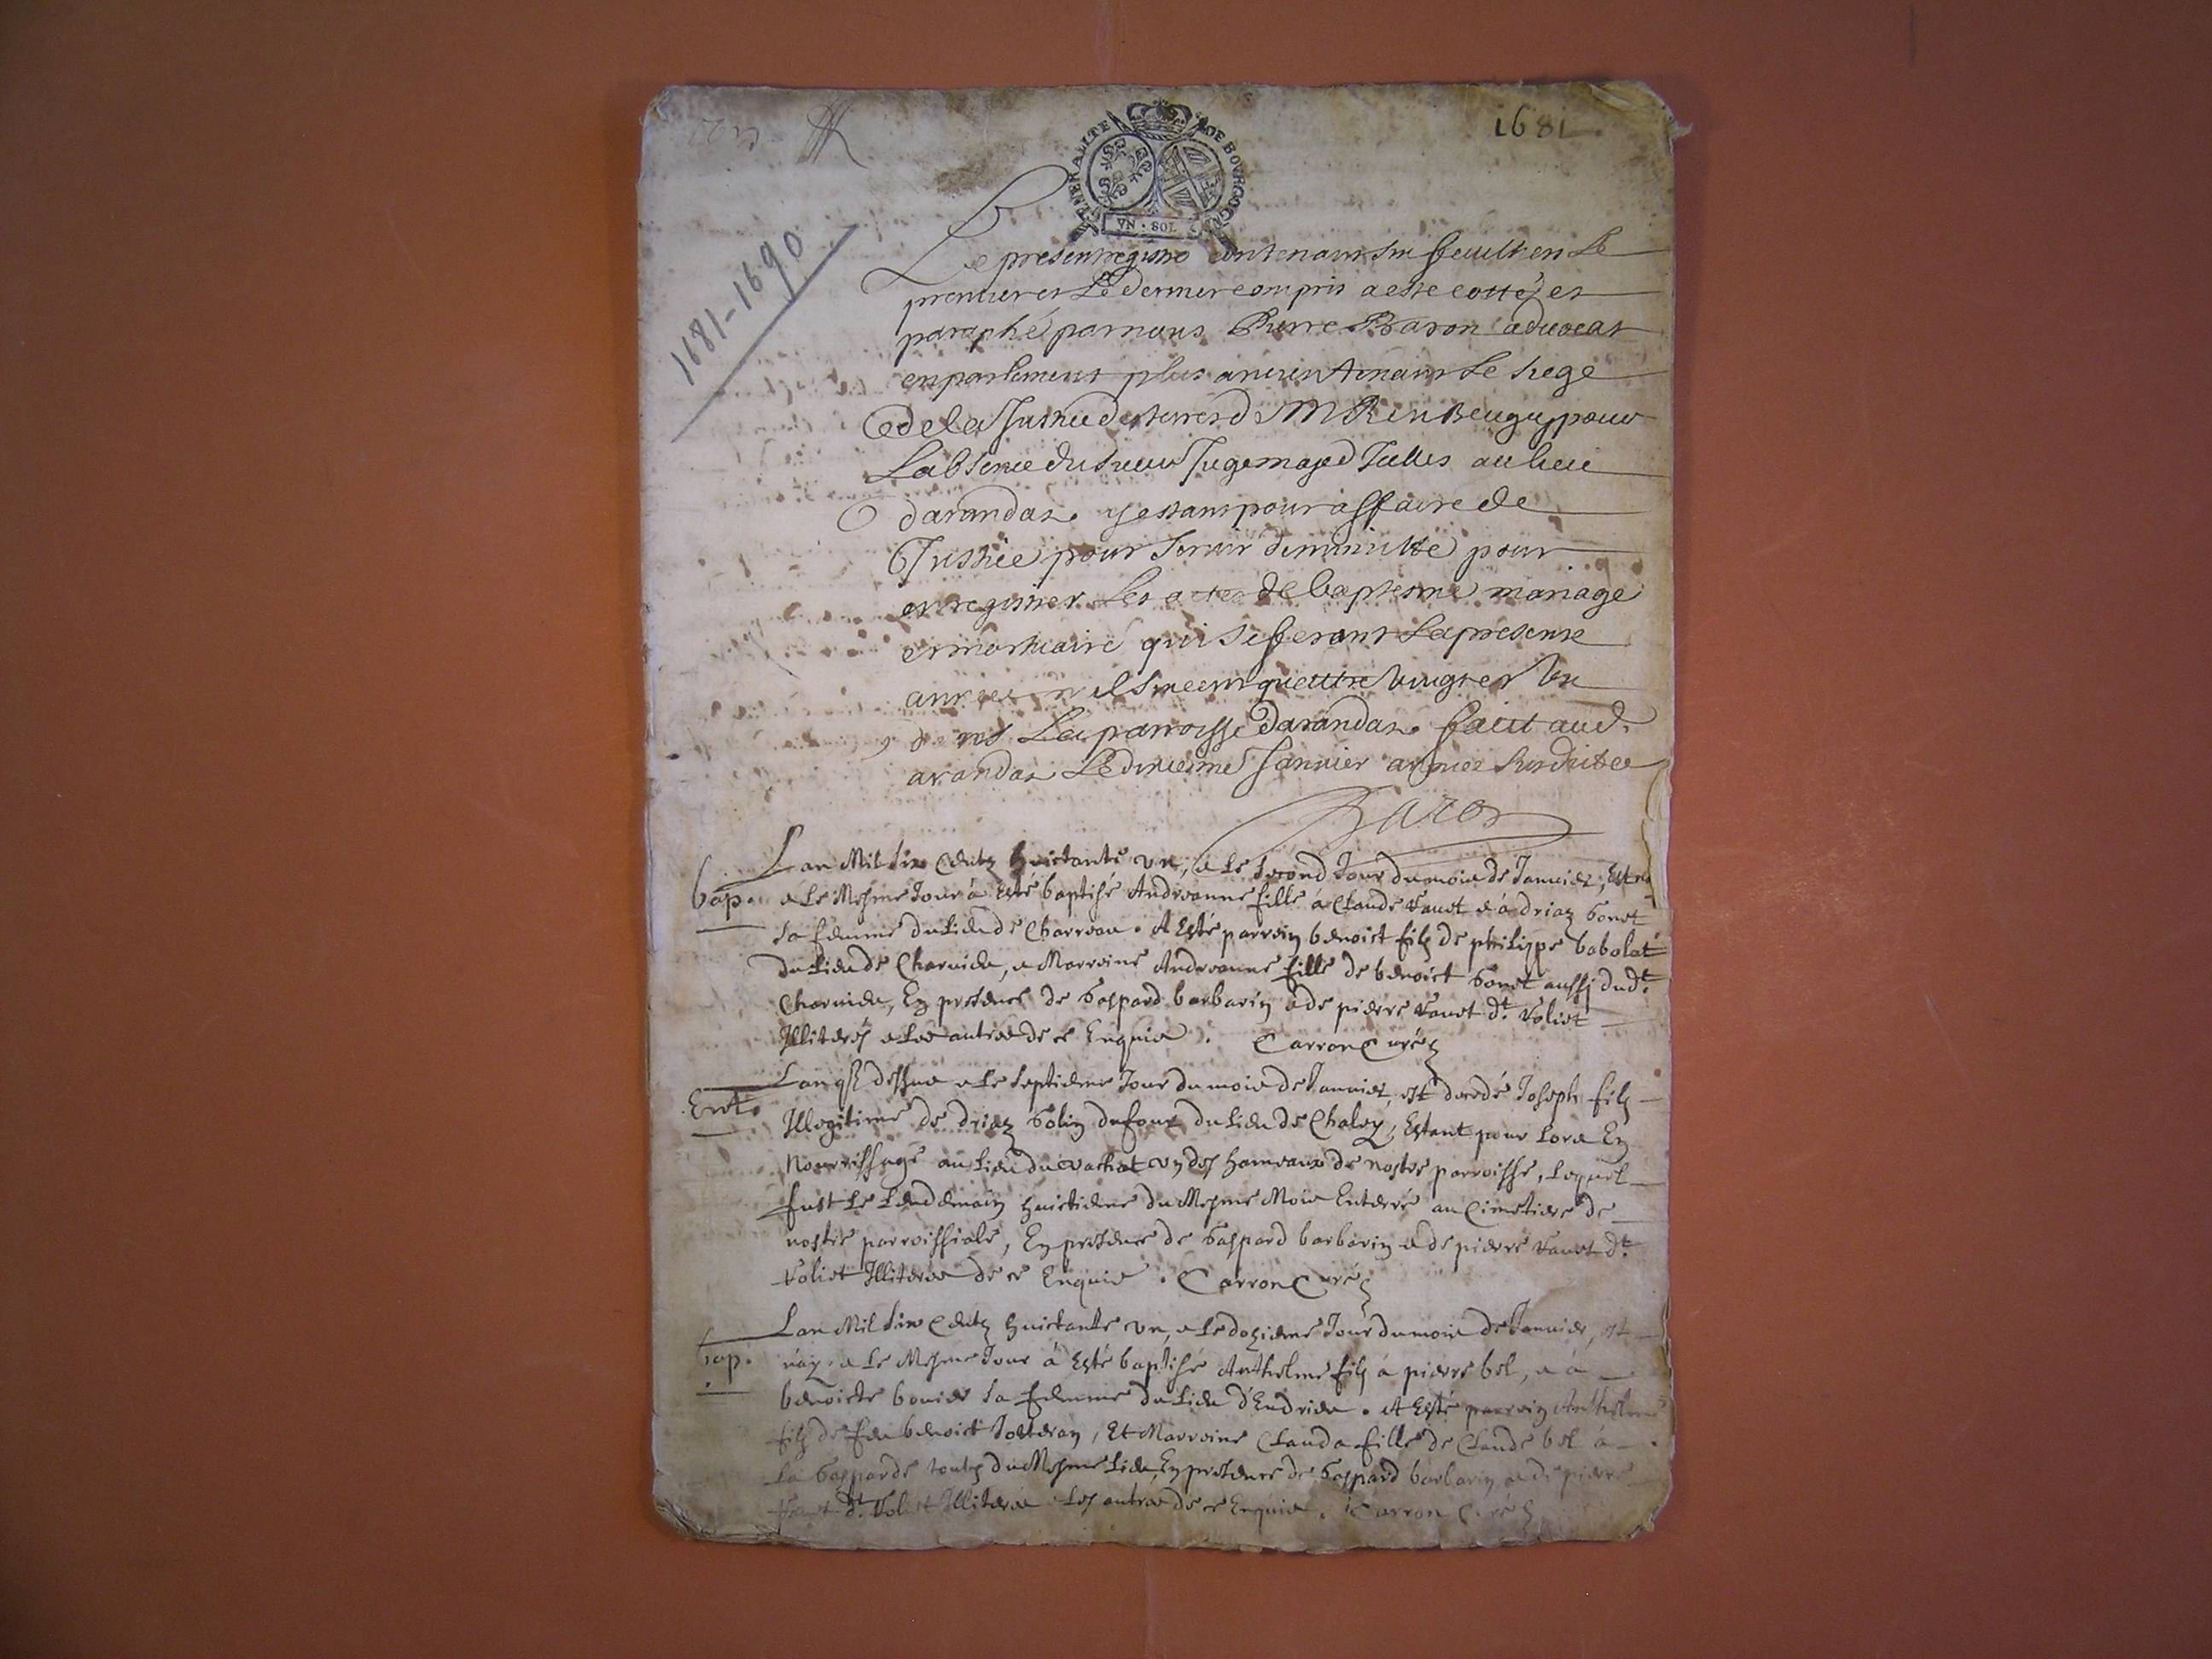 1681
GENERALITE DE BOVRGOGNE
VN · SOL
1681-1690
Le present registre contenant six feuilles Le
premier et Le dernier compris a este cotté et
paraphé par nous Pierre Baron advocat
en parlement plus ancien tenant Le siege
de la Justice des terres de St Rembert pour
Labsence du sieur Juge maje d Icelles au lieu
darandas y estant pour affaire de
Justice pour servir de minutte pour
enregistrer Les actes de baptesme mariage
et mortuaire qui se feront La presente
année mil six cent quattre vingt et un
dans La parroisse darandas faict aud.
arandas Le dixiesme Janvier année susditte
Baron
Lan Mil six Centz huictante un, & le second Jour du mois de Janvier, Est né
bap. & le Mesme Jour à Esté baptisé Andreanne fille à Claude & à driaz
sa femme du lieu de Charveu. A Esté parrein benoict filz de philippe babolat
du lieu de, & Marreine Andreanne fille de benoict aussi dud.t
En presence de Gaspard barbarin & de pierre d.t Voliet
Illiteres & les autres de ce Enquis. Carron Curé
Lan q. dessus & le septieme Jour du mois de Janvier, est decedé Joseph filz
Ent. Illegitime de driaz du lieu de Chaley, Estant pour lors En
Nourrissage au lieu du vachat un des hameaux de nostre parroisse, lequel
fust le lendemain huictieme du Mesme Mois Enterré au Cimetiere de
nostre parroissiale, En presence de Gaspard barbarin & de pierre d.t
Voliet Illiteres de ce Enquis. Carron Curé
Lan Mil six Centz huictante un, & le dozieme Jour du mois de Janvier, est
bap. náz, & le Mesme Jour à Esté baptisé Anthelme filz à pierre bel, & à
benoicte bouier sa femme du lieu d'Endrieu. A Esté parrein Anthelme
filz de feu benoict, Et Marreine Clauda fille de Claude bel à
la Gasparde toutz du Mesme lieu, En presence de Gaspard barbarin & de pierre
d.t Voliet Illiteres les autres de ce Enquis. Carron Curé